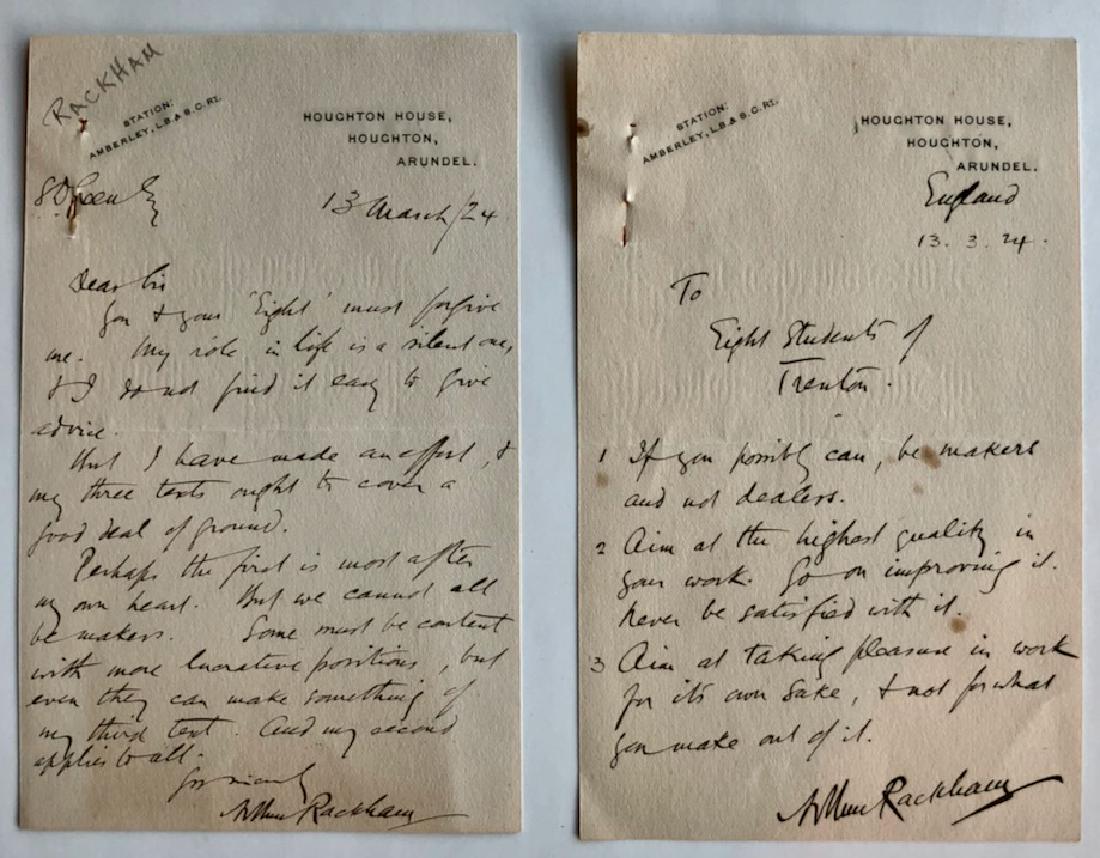 RACKHAM
STATION:
AMBERLEY, L.B. & S.C. RY.
HOUGHTON HOUSE,
HOUGHTON,
ARUNDEL.
13 March/24
Dear Sir
You & your 'Eight' must forgive
me. My role in life is a silent one,
& I do not find it easy to give
advice.
But I have made an effort, &
my three texts ought to cover a
good deal of ground.
Perhaps the first is most after
my own heart. But we cannot all
be makers. Some must be content
with more lucrative positions, but
even they can make something of
my third text. And my second
applies to all.
Arthur Rackham
STATION:
AMBERLEY, L.B. & S.C. RY.
HOUGHTON HOUSE,
HOUGHTON,
ARUNDEL.
England
13.3.24.
To
Eight Students of
Trenton.
1 If you possibly can, be makers
and not dealers.
2 Aim at the highest quality in
your work. Go on improving it.
Never be satisfied with it.
3 Aim at taking pleasure in work
for its own sake, & not for what
you make out of it.
Arthur Rackham